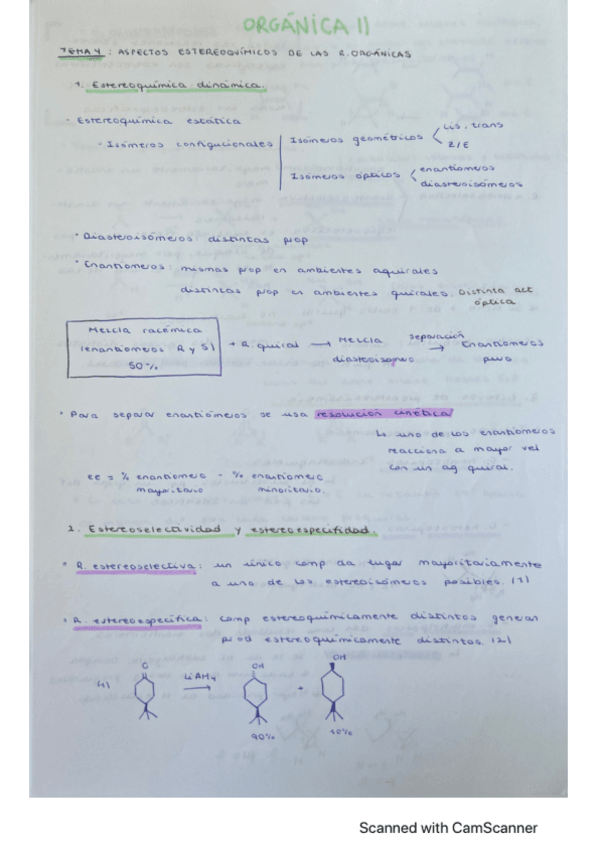 ORGÁNICA II
TEMA 4: ASPECTOS ESTEREOQUÍMICOS DE LAS R. ORGÁNICAS
1. Estereoquímica dinámica.
· Estereoquímica estática
· Isómeros configucionales
Isómeros geométricos
cis, trans
Z/E
Isómeros ópticos
enantiómeros
diasteroisómeros
· Diasteroisómeros: distintas prop
· Enantiómeros: mismas prop en ambientes aquirales
distintas prop en ambientes quirales. Distinta act óptica
Mezcla racémica
(enantiómeros R y S)
50%
+ R. quiral → Mezcla
diasteroisómero
separación
→ Enantiómeros
puro
· Para separar enantiómeros se usa resolución cinética
↳ uno de los enantiómeros
reacciona a mayor vel
con un ag quiral.
ee = % enantiómero - % enantiómero
mayoritario minoritario.
2. Estereoselectividad y estereoespecifidad.
· R. estereoselectiva: un único comp da lugar mayoritariamente
a uno de los estereoisómeros posibles. (1)
· R. estereoespecífica: comp estereoquímicamente distintos generan
prod estereoquímicamente distintos. (2)
O
LiAlH4
→
OH
+
OH
90%
10%
Scanned with CamScanner